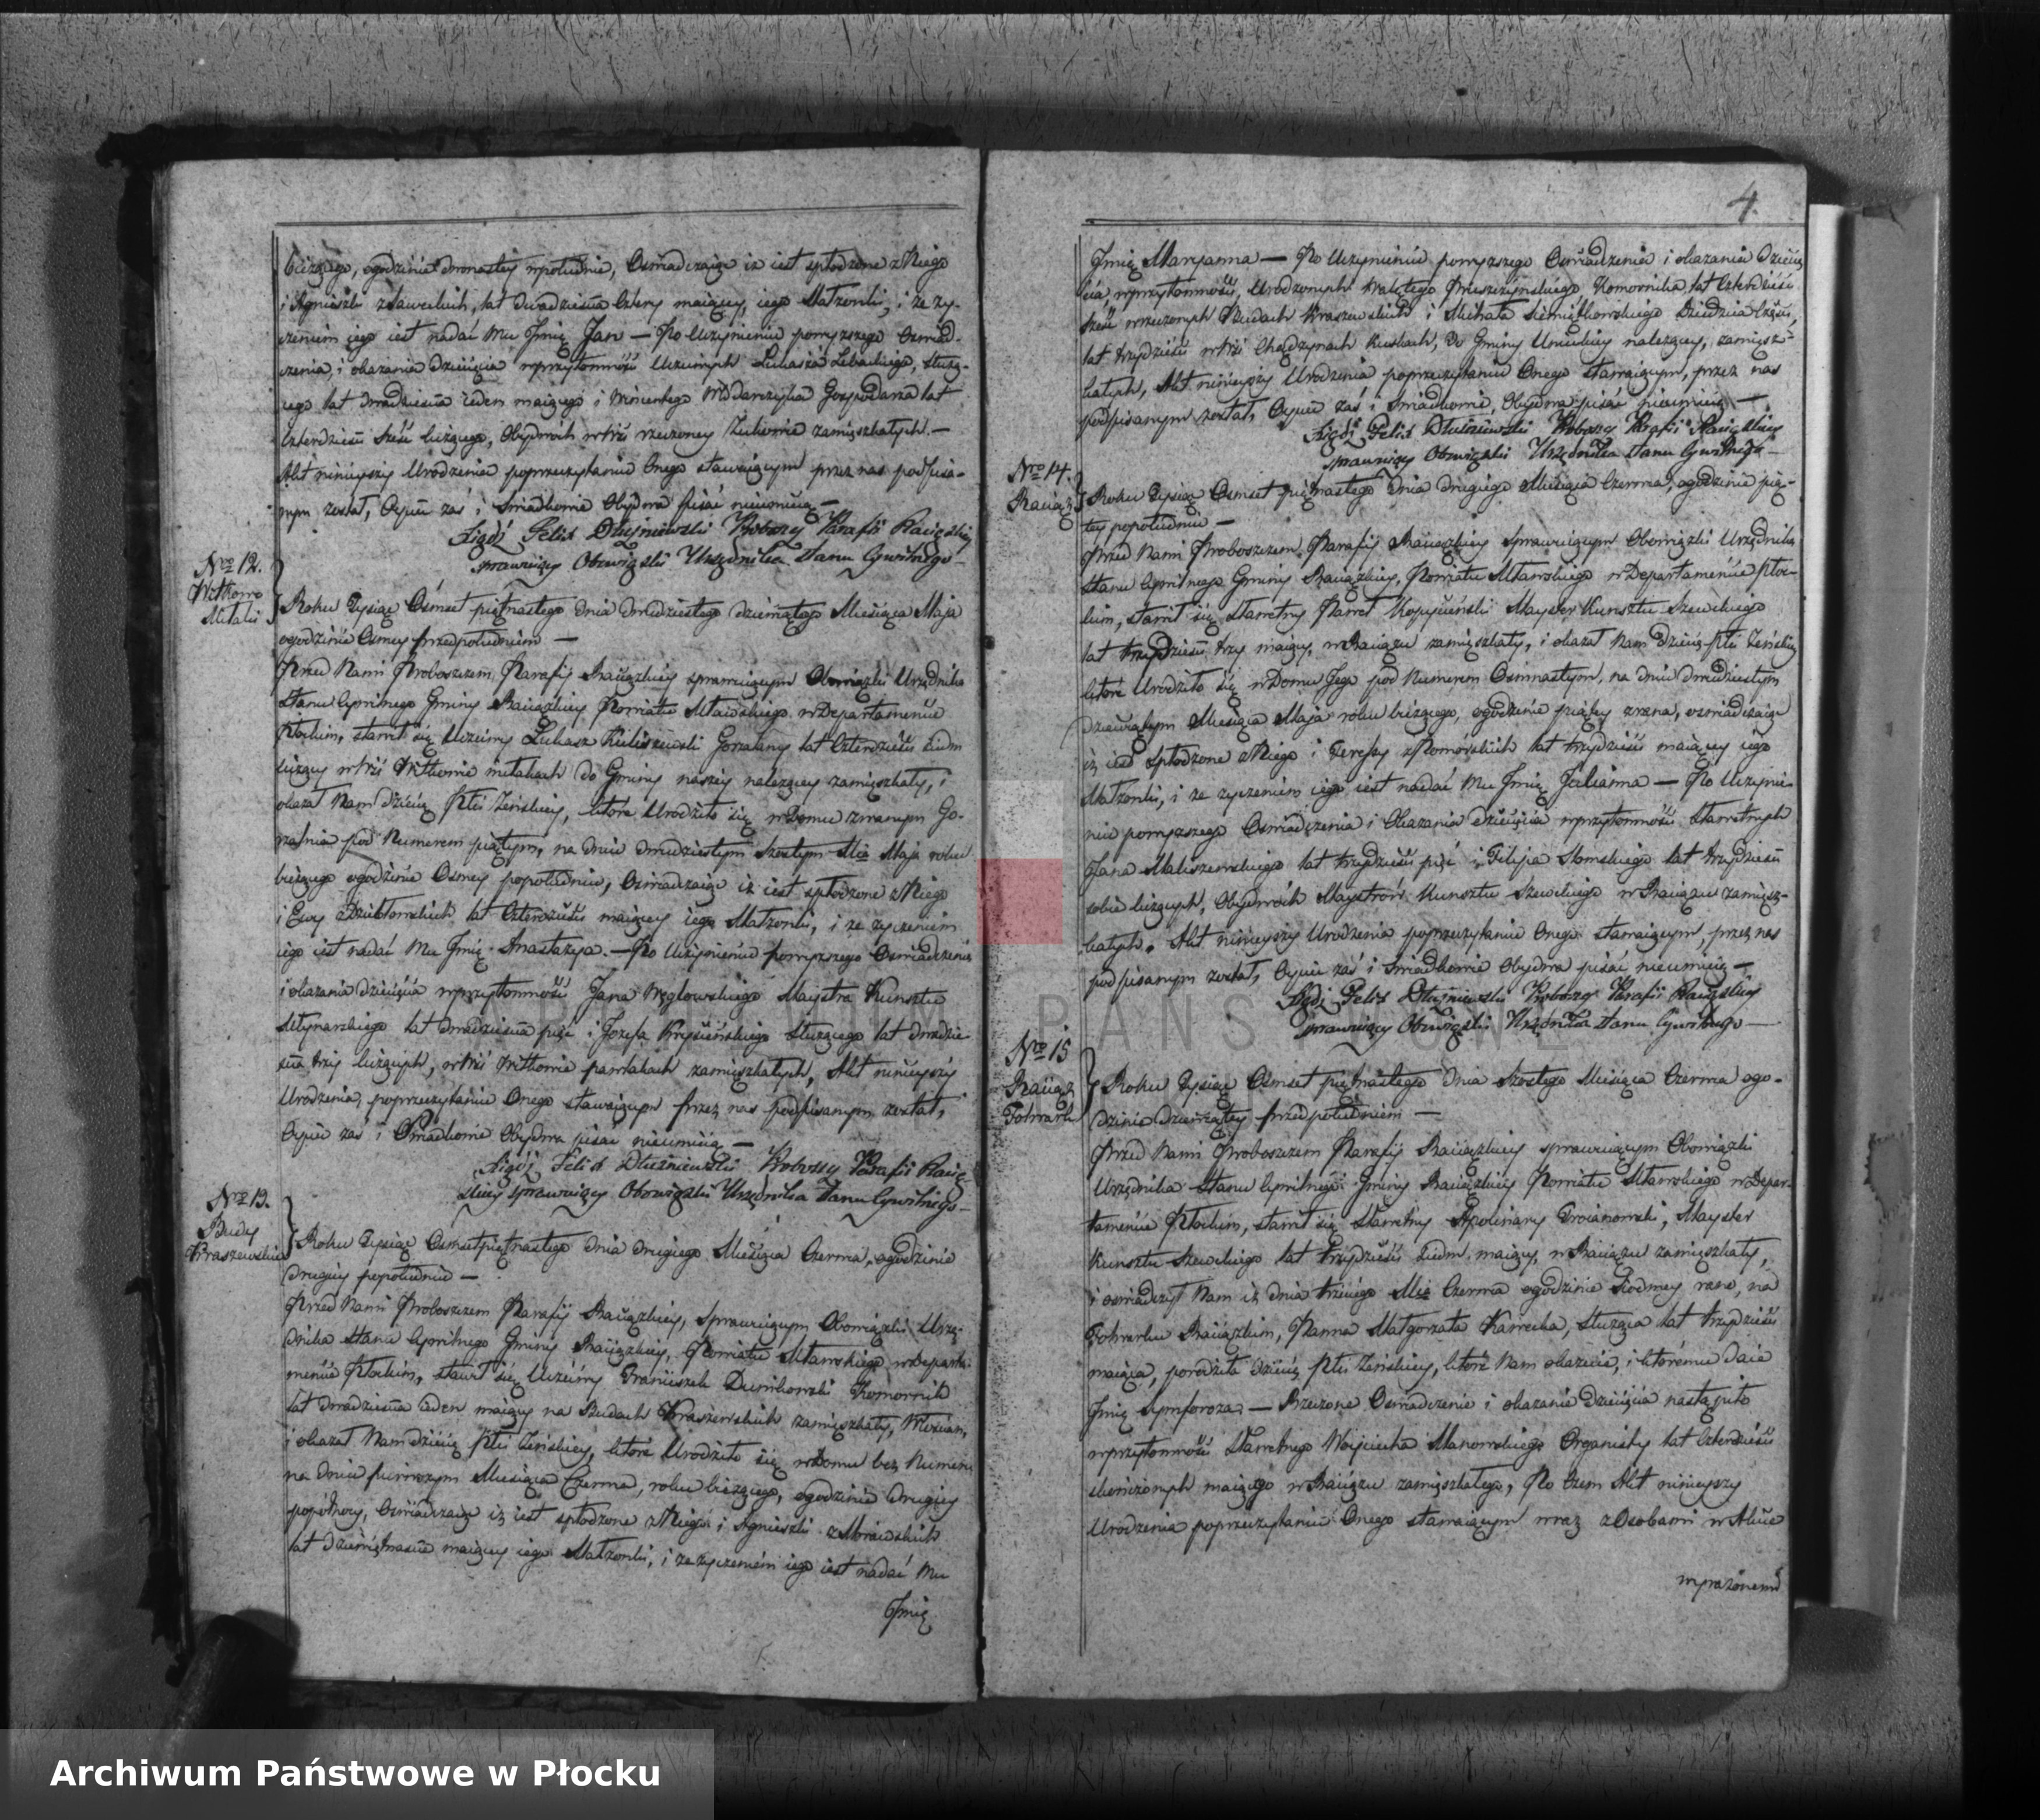 bieżącego, ogodzinie dwunastey wpołudnie, Oświadczaiąc iż iest spłodzone z Niego
i Agnieszki zSawickich, lat dwadzieścia Cztery maiącey, iego Małżonki, i że ży-
czeniem iego iest nadać mu Jmię Jan — Po Uczynieniu powyższego Oświad-
czenia, i okazania Dziecięcia wprzytomności Uczciwych Łukasza służą-
cego lat dwadzieścia ieden maiącego i Wincentego Włodarczyka Gospodarza lat
Czterdzieści Sześć liczącego, Obydwóch wWsi rzeczoney zamięszkałych. —
Akt ninieyszy Urodzenia poprzeczytaniu Onego stawaiącym przez nas podpisa-
nym został, Oyciec zaś i Świadkowie Obydwa pisać nieumieią —
Xiądz Felix Dłużniewski Proboszcz Parafii Raciąskiey
sprawuiący Obowiązki Urzędnika Stanu Cywilnego —
Nro 12.
Witkowo
Mitaki
Roku Tysiąc Ośmset piętnastego dnia dwudziestego dziewiątego Miesiąca Maja
ogodzinie Osmey przedpołudniem —
Przed Nami Proboszczem Parafij Raciązkiey sprawuiącym Obowiązki Urzędnika
Stanu Cywilnego Gminy Raciązkiey Powiatu Mławskiego wDepartamencie
Płockim, stawił się Uczciwy Łukasz Gorzalany lat Czterdzieści siedm
liczący wWsi Witkowie mitakach do Gminy naszey należącey zamięszkały, i
okazał Nam dziecię Płci Żeńskiey, które Urodziło się wDomu zwanym Go-
rzalnia pod Numerem piątym, na dniu dwudziestym szóstym Mca Maja roku
bieżącego ogodzinie Osmey popołudniu, Oświadczaiąc iż iest spłodzone zNiego
i Ewy lat Czterdzieści maiącey iego Małżonki, i że życzeniem
iego iest nadać Mu Jmię Anastazya. — Po Uczynieniu powyższego Oświadczenia
i okazania dziecięcia wprzytomności Jana Węglowskiego Maystra Kunsztu
Młynarskiego lat dwadzieścia pięć i Jozefa Krysińskiego służącego lat dwadzie-
ścia trzy liczących, wWsi Witkowie pawlakach zamięszkałych, Akt ninieyszy
Urodzenia, poprzeczytaniu Onego stawaiącym przez nas podpisanym został,
Oyciec zaś i Świadkowie Obydwa pisać nieumieią —
Xiądz Felix Dłużniewski Proboszcz Parafii Racią-
skiey sprawuiący Obowiązki Urzędnika Stanu Cywilnego —
Nro 13.
Budy
Kraszewskie
Roku Tysiąc Ośmsetpiętnastego dnia drugiego Miesiąca Czerwca, ogodzinie
drugiey popołudniu —
Przed Nami Proboszczem Parafij Raciązkiey, sprawuiącym Obowiązki Urzę-
dnika Stanu Cywilnego Gminy Raciązkiey, Powiatu Mławskiego wDeparta-
mencie Płockim, stawił się Uczciwy Franciszek Komornik
lat dwadzieścia ieden maiący na Budach Kraszewskich zamięszkały,
i okazał Nam dziecię Płci Żeńskiey, które Urodziło się wDomu bez Numeru
na dniu pierwszym Miesiąca Czerwca, roku bieżącego, ogodzinie drugiey
popółnocy, Oświadczaiąc iż iest spłodzone zNiego i Agnieszki
lat dziewiętnaście maiącey iego Małżonki, i że życzeniem iego iest nadać Mu
Jmię
4.
Jmię Maryanna — Po Uczynieniu powyższego Oświadczenia i okazania Dziecię-
cia, wprzytomności, Urodzonych Komornika lat Czterdzieści
Sześć wrzeczonych Budach Kraszewskich i Michała Dziedzica Części,
lat trzydzieści wWsi Chądzynach Kuskach, do Gminy należącey, zamięsz-
kałych, Akt ninieyszy Urodzenia poprzeczytaniu Onego stawaiącym, przez nas
podpisanym został, Oyciec zaś i Świadkowie, Obydwa pisać nieumieią —
Xiądz Felix Dłużniewski Proboszcz Parafii Raciąskiey
sprawuiący Obowiązki Urzędnika Stanu Cywilnego —
Nro 14.
Raciąż
Roku Tysiąc Ośmset piętnastego Dnia drugiego Miesiąca Czerwca, ogodzinie pią-
tey popołudniu —
Przed Nami Proboszczem Parafij Raciązkiey sprawuiącym Obowiązki Urzędnika
Stanu Cywilnego Gminy Raciązkiey, Powiatu Mławskiego wDepartamencie Płoc-
kim, stawił się Sławetny Paweł Mayster Kunsztu Szewckiego
lat trzydzieści trzy maiący, wRaciążu zamięszkały, i okazał Nam Dziecię Płci Żeńskiey
które Urodziło się wDomu Jego pod Numerem Osmnastym, na dniu dwudziestym
dziewiątym Miesiąca Maja roku bieżącego, ogodzinie piątey zrana, oświadczaiąc
iż iest spłodzone zNiego i Teressy zPomorskich lat trzydzieści maiącey iego
Małżonki, i że życzeniem iego iest nadać Mu Jmię Julianna — Po Uczynie-
niu powyższego Oświadczenia i Okazania dziecięcia wprzytomności Sławetnych
Jana Maliszewskiego lat trzydzieści pięć i Filipa Słomskiego lat trzydzieści
sobie liczących, Obydwóch Maystrów Kunsztu Szewckiego wRaciążu zamięsz-
kałych. Akt ninieyszy Urodzenia poprzeczytaniu Onego stawaiącym, przez nas
podpisanym został, Oyciec zaś i Świadkowie Obydwa pisać nieumieią —
Xiądz Felix Dłużniewski Proboszcz Parafii Raciąskiey
sprawuiący Obowiązki Urzędnika Stanu Cywilnego —
Nro 15
Raciąż
Folwark
Roku Tysiąc Ośmset piętnastego Dnia szóstego Miesiąca Czerwca ogo-
dzinie dziewiątey przedpołudniem —
Przed Nami Proboszczem Parafij Raciązkiey sprawuiącym Obowiązki
Urzędnika Stanu Cywilnego Gminy Raciązkiey Powiatu Mławskiego wDepar-
tamencie Płockim, stawił się Sławetny Apolinary Troianowski, Mayster
Kunsztu Szewckiego lat trzydzieści siedm maiący, wRaciążu zamięszkały,
i oświadczył Nam iż dnia trzeciego Mca Czerwca ogodzinie siodmey rano, na
Folwarku Raciązkim, Panna Małgorzata Kawecka, służąca lat trzydzieści
maiąca, porodziła dziecię Płci Żeńskiey, które Nam okazuie, i któremu daie
Jmię Symforoza. — Rzeczone Oświadczenie i okazanie Dziecięcia nastąpiło
wprzytomności Sławetnego Woyciecha Manowskiego Organisty lat Czterdzieści
skończonych maiącego wRaciążu zamięszkałego, Po Czem Akt ninieyszy
Urodzenia poprzeczytaniu Onego stawaiącym wraz zOsobami wAkcie
wyrażonemi
ARCHIWUM PAŃSTWOWE
Archiwum Państwowe w Płocku